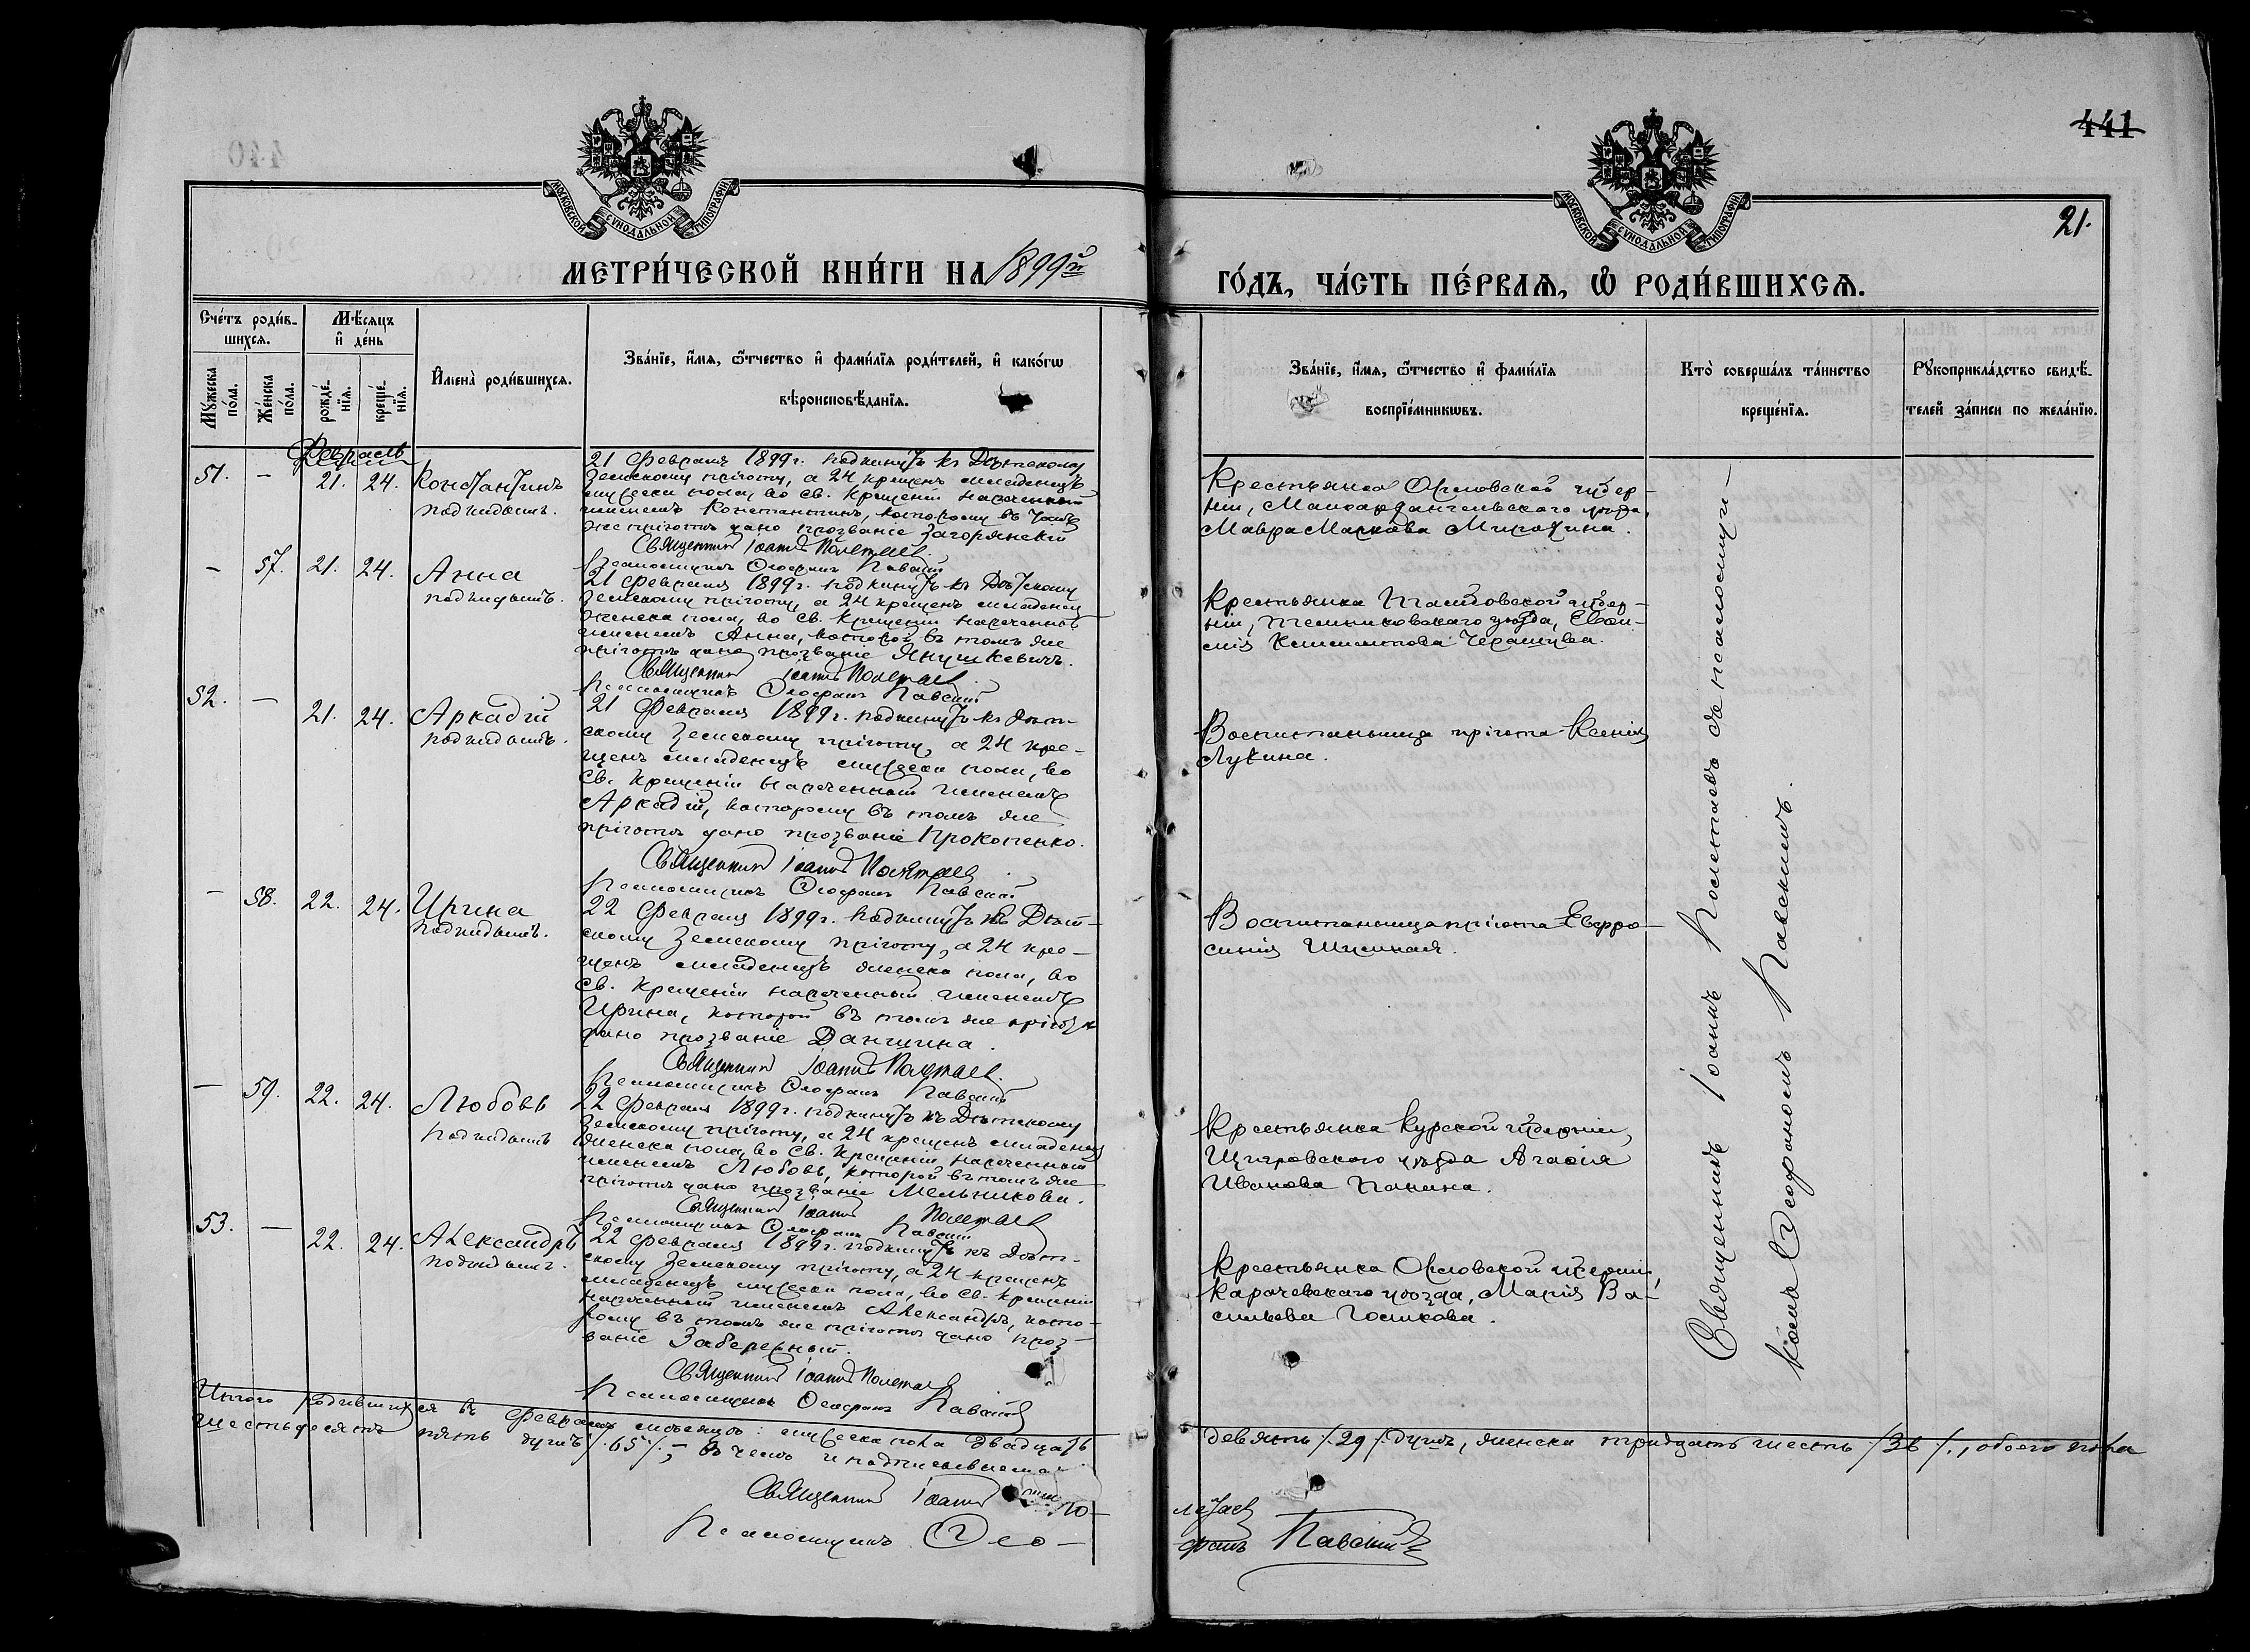 441
21.
МОСКОВСКОЙ СУНОДАЛЬНОЙ ТИПОГРАФІИ
МОСКОВСКОЙ СУНОДАЛЬНОЙ ТИПОГРАФІИ
МЕТРИ́ЧЕСКОЙ КНИ́ГИ НА 1899й
ГО́ДЪ, ЧА́СТЬ ПЕ́РВАѦ, Ѽ РОДИ́ВШИХСѦ.
Сче́тъ роди́в-
шихсѧ.
Мꙋжеска по́ла.
Же́нска по́ла.
Мѣ́сѧцъ
и҆ де́нь
рожде́-
нїѧ.
креще́-
нїѧ.
И҆мена̀ роди́вшихсѧ.
Зва́нїе, и҆́мѧ, ѻ҆́тчество и҆ фами́лїѧ роди́телей, и҆ како́гѡ
вѣроисповѣ́данїѧ.
Зва́нїе, и҆́мѧ, ѻ҆́тчество и҆ фами́лїѧ
воспрїе́мникѡвъ.
Кто̀ соверша́лъ та́инство
креще́нїѧ.
Рꙋкоприкла́дство свидѣ́-
телей за́писи по жела́нїю.
Февраль
51. — 21. 24. Константинъ
подкидышъ.
21 Февраля 1899 г. подкинутъ къ Дѣтскому
Земскому пріюту, а 24 крещенъ младенецъ
мужеска пола, во Св. Крещеніи нареченный
именемъ Константинъ, которому въ томъ
же пріютѣ дано прозваніе Загорянскій
Священникъ Іоаннъ Полетаев.
Псаломщикъ Ѳеофанъ Павскій
Крестьянка Орловской губер-
ніи, Малоархангельскаго уѣзда,
Мавра Маркова
— 57. 21. 24. Анна
подкидышъ.
21 Февраля 1899 г. подкинутъ къ Дѣтскому
Земскому пріюту, а 24 крещенъ младенец
женска пола, во Св. Крещеніи нареченный
именемъ Анна, которой въ томъ же
пріютѣ дано прозваніе Янушкевичъ.
Священникъ Іоаннъ Полетаев.
Псаломщикъ Ѳеофанъ Павскій
Крестьянка Тамбовской губер-
ніи, Темниковскаго уѣзда, Евфи-
мія
52. — 21. 24. Аркадій
подкидышъ.
21 Февраля 1899 г. подкинутъ къ Дѣт-
скому Земскому пріюту, а 24 кре-
щенъ младенецъ мужеска пола, во
Св. Крещеніи нареченный именемъ
Аркадій, которому въ томъ же
пріютѣ дано прозваніе Прокопенко.
Священникъ Іоаннъ Полетаев
Псаломщикъ Ѳеофанъ Павскій
Воспитанница пріюта Ксенія
Лукина.
— 58. 22. 24. Ирина
подкидышъ.
22 Февраля 1899 г. подкинутъ къ Дѣт-
скому Земскому пріюту, а 24 кре-
щенъ младенецъ женска пола, во
Св. Крещеніи нареченный именемъ
Ирина, которой въ томъ же пріютѣ
дано прозваніе Даншина.
Священникъ Іоаннъ Полетаев.
Псаломщикъ Ѳеофанъ Павскій
Воспитанница пріюта Евфро-
синія
— 59. 22. 24. Любовь
подкидышъ
22 Февраля 1899 г. подкинутъ къ Дѣтскому
Земскому пріюту, а 24 крещенъ младенецъ
женска пола, во Св. Крещеніи нареченный
именемъ Любовь, которой въ томъ же
пріютѣ дано прозваніе Мельникова.
Священникъ Іоаннъ Полетаев
Псаломщикъ Ѳеофанъ Павскій
Крестьянка Курской губерніи,
Щигровскаго уѣзда Агафія
Иванова Панина.
53. — 22. 24. Александръ
подкидышъ.
22 Февраля 1899 г. подкинутъ къ Дѣт-
скому Земскому пріюту, а 24 крещенъ
младенецъ мужеска пола, во Св. Крещеніи
нареченный именемъ Александръ, кото-
рому въ томъ же пріютѣ дано проз-
ваніе Забережный.
Священникъ Іоаннъ Полетаев
Псаломщикъ Ѳеофанъ Павскій
Крестьянка Орловской губерніи,
Карачевскаго уѣзда, Марія Ва-
сильева Голикова.
Священникъ Іоаннъ Полетаевъ съ псаломщи-
комъ Ѳеофаномъ Павскимъ.
Итого родившихся въ Февралѣ мѣсяцѣ: мужеска пола двадцать
девять /29/ душъ, женска тридцать шесть /36/, обоего пола
шестьдесятъ пять душъ /65/, — въ чемъ и подписываемся
Священникъ Іоаннъ По-
летаев
Псаломщикъ Ѳео-
фанъ Павскій